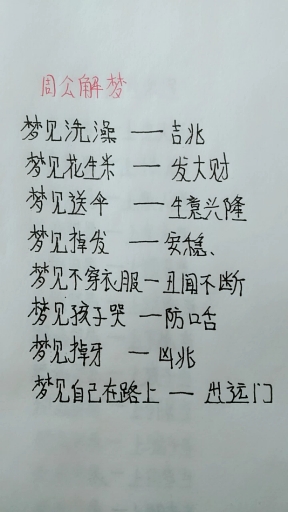 周公解梦
梦见洗澡 — 吉兆
梦见花生米 — 发大财
梦见送伞 — 生意兴隆
梦见掉发 — 安稳、
梦见不穿衣服 — 丑闻不断
梦见孩子哭 — 防口舌
梦见掉牙 — 凶兆
梦见自己在路上 — 出远门